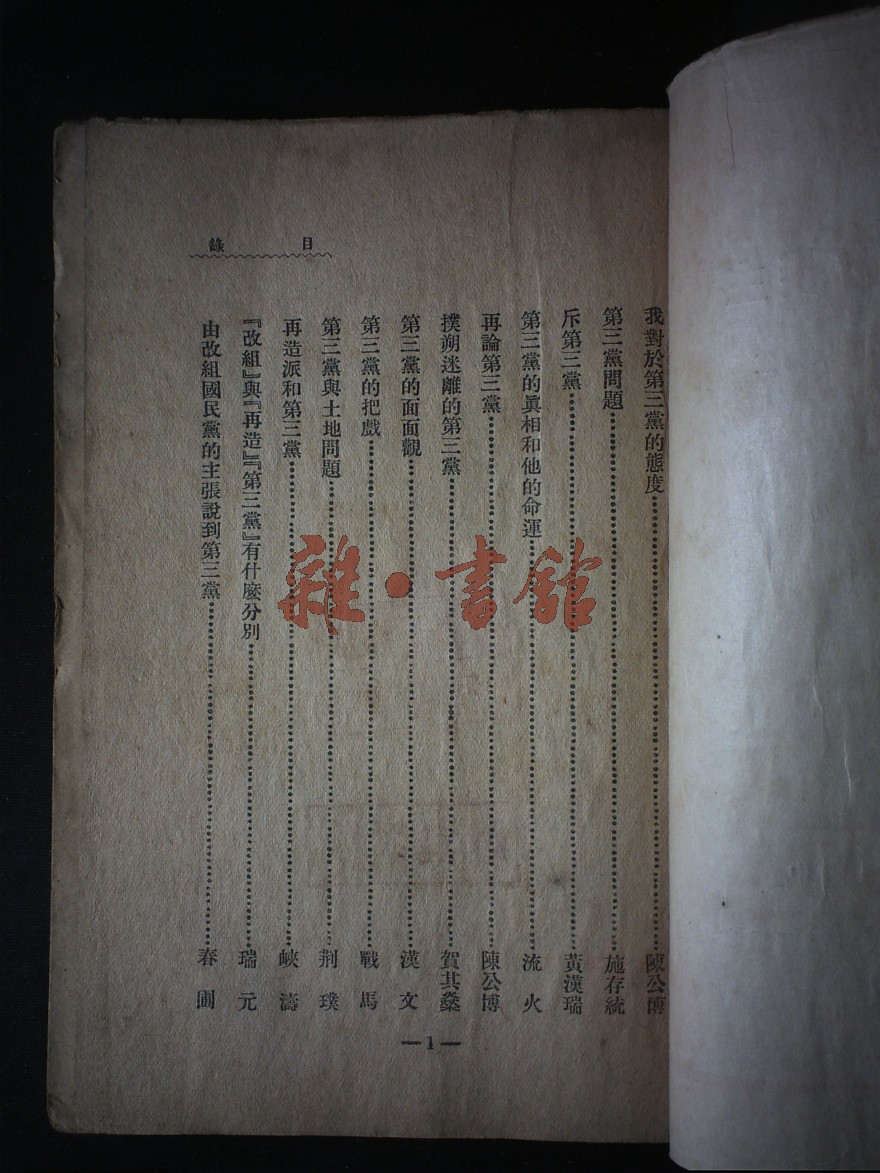 目錄
我對於第三黨的態度……陳公博
第三黨問題……施存統
斥第三黨……黃漢瑞
第三黨的眞相和他的命運……流火
再論第三黨……陳公博
撲朔迷離的第三黨……賀其燊
第三黨的面面觀……漢文
第三黨的把戲……戰馬
第三黨與土地問題……荆璞
再造派和第三黨……峽濤
『改組』與『再造』『第三黨』有什麼分別……瑞元
由改組國民黨的主張說到第三黨……春圃
—1—
雜·書館